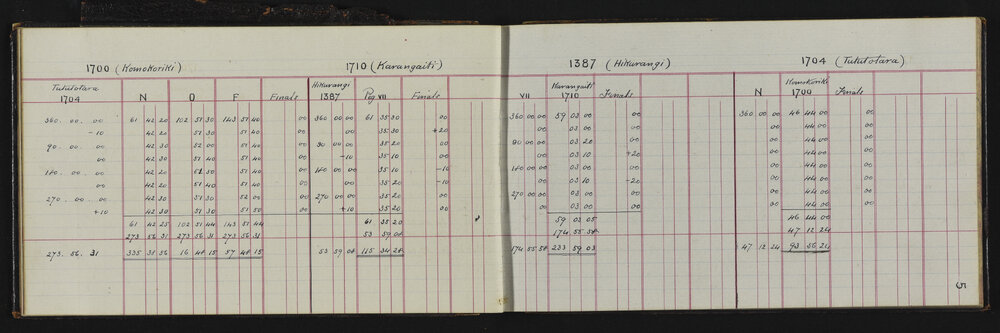 1700 (Komokoriki) 1710 (Karangaiti) 1387 (Hikurangi) 1704 (Tututotara)
Tututotara 1704 N O F Finals Hikurangi 1387 Peg VII Finals VII Karangaiti 1710 Finals N Komokoriki 1700 Finals
360 .. 00 .. 00 61 42 20 102 51 30 143 51 40 00 360 00 00 61 35 30 00 360 00 00 59 03 00 00 360 00 00 46 44 00 00
-10 42 20 51 30 51 40 00 00 35 30 +20 00 03 00 00 00 44 00 00
90 .. 00 .. 00 42 30 52 00 51 40 00 90 00 00 35 20 00 90 00 00 03 20 00 00 44 00 00
00 42 30 51 40 51 40 00 -10 35 10 00 00 03 10 +20 00 44 00 00
180 .. 00 .. 00 42 20 51 50 51 40 00 180 00 00 35 10 -10 180 00 00 03 00 00 00 44 00 00
00 42 20 51 40 51 40 00 00 35 20 -10 00 03 10 -20 00 44 00 00
270 .. 00 .. 00 42 30 51 30 52 00 00 270 00 00 35 20 00 270 00 00 03 00 00 00 44 00 00
+10 42 30 51 50 51 50 00 +10 35 20 00 00 03 00 00 00 44 00 00
61 42 25 102 51 44 143 51 44 61 35 20 59 03 05 46 44 00
273 56 31 273 56 31 273 56 31 53 59 08 174 55 58 47 12 24
273 .. 56 .. 31 335 38 56 16 48 15 57 48 15 53 59 08 115 34 28 174 55 58 233 59 03 47 12 24 93 56 24
5